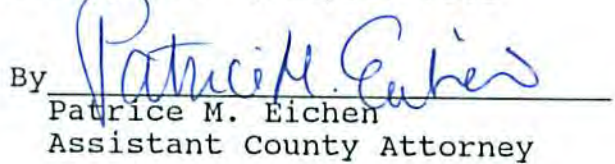 By Patrice M. Eichen
Patrice M. Eichen
Assistant County Attorney